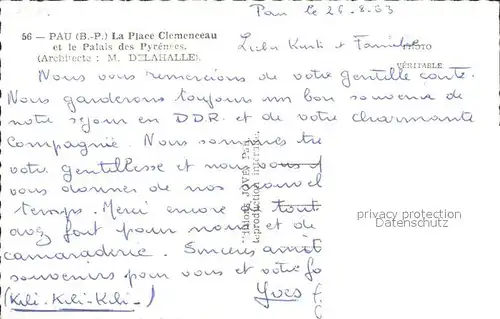 Pau le 26-8-63
56 — PAU (B.-P.) La Place Clemenceau
et le Palais des Pyrénées.
(Architecte : M. DELAHALLE).
PHOTO
VÉRITABLE
Lieber Kurt + Familie
Nous vous remercions de votre gentille carte.
Nous garderons toujours un bon souvenir de
notre séjour en D.D.R. et de votre charmante
compagnie. Nous sommes
votre gentillesse et nous vous
vous donner de nos
temps. Merci encore de tout
avez fait pour nous et de
camaraderie. Sincères
souvenirs pour vous et votre
(Kili-Kili-Kili-)
Yves
Editions JOVE, Pau
Reproduction interdite.
privacy protection
Datenschutz